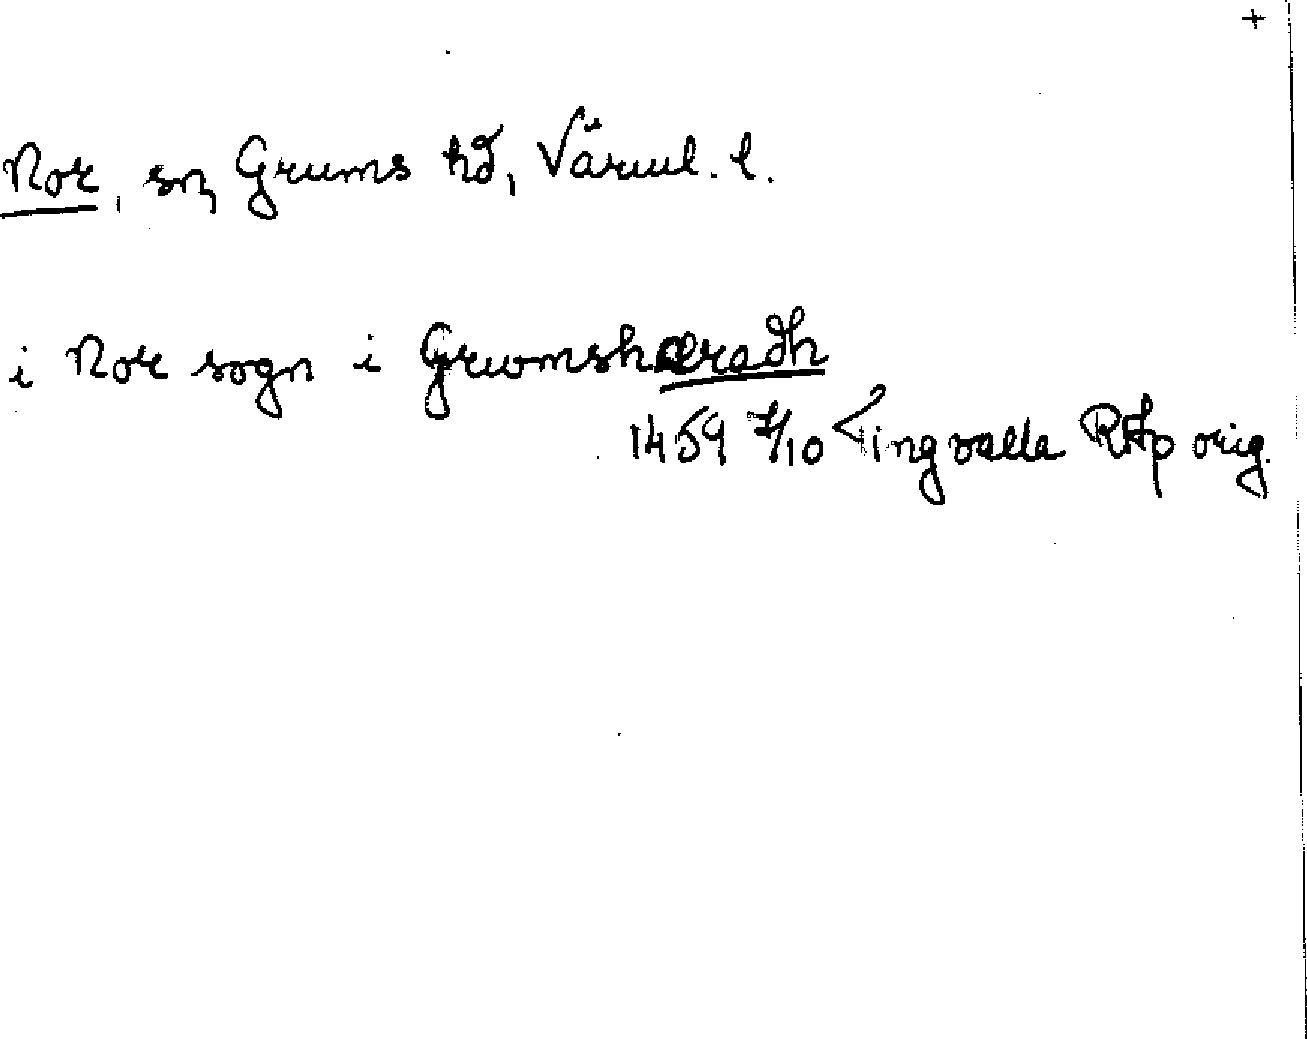 +
Nor, sn, Grums hd, Värml. l.
i Nor sogn i Grwmshæradh
1459 7/10 Tingvalla RAp orig.